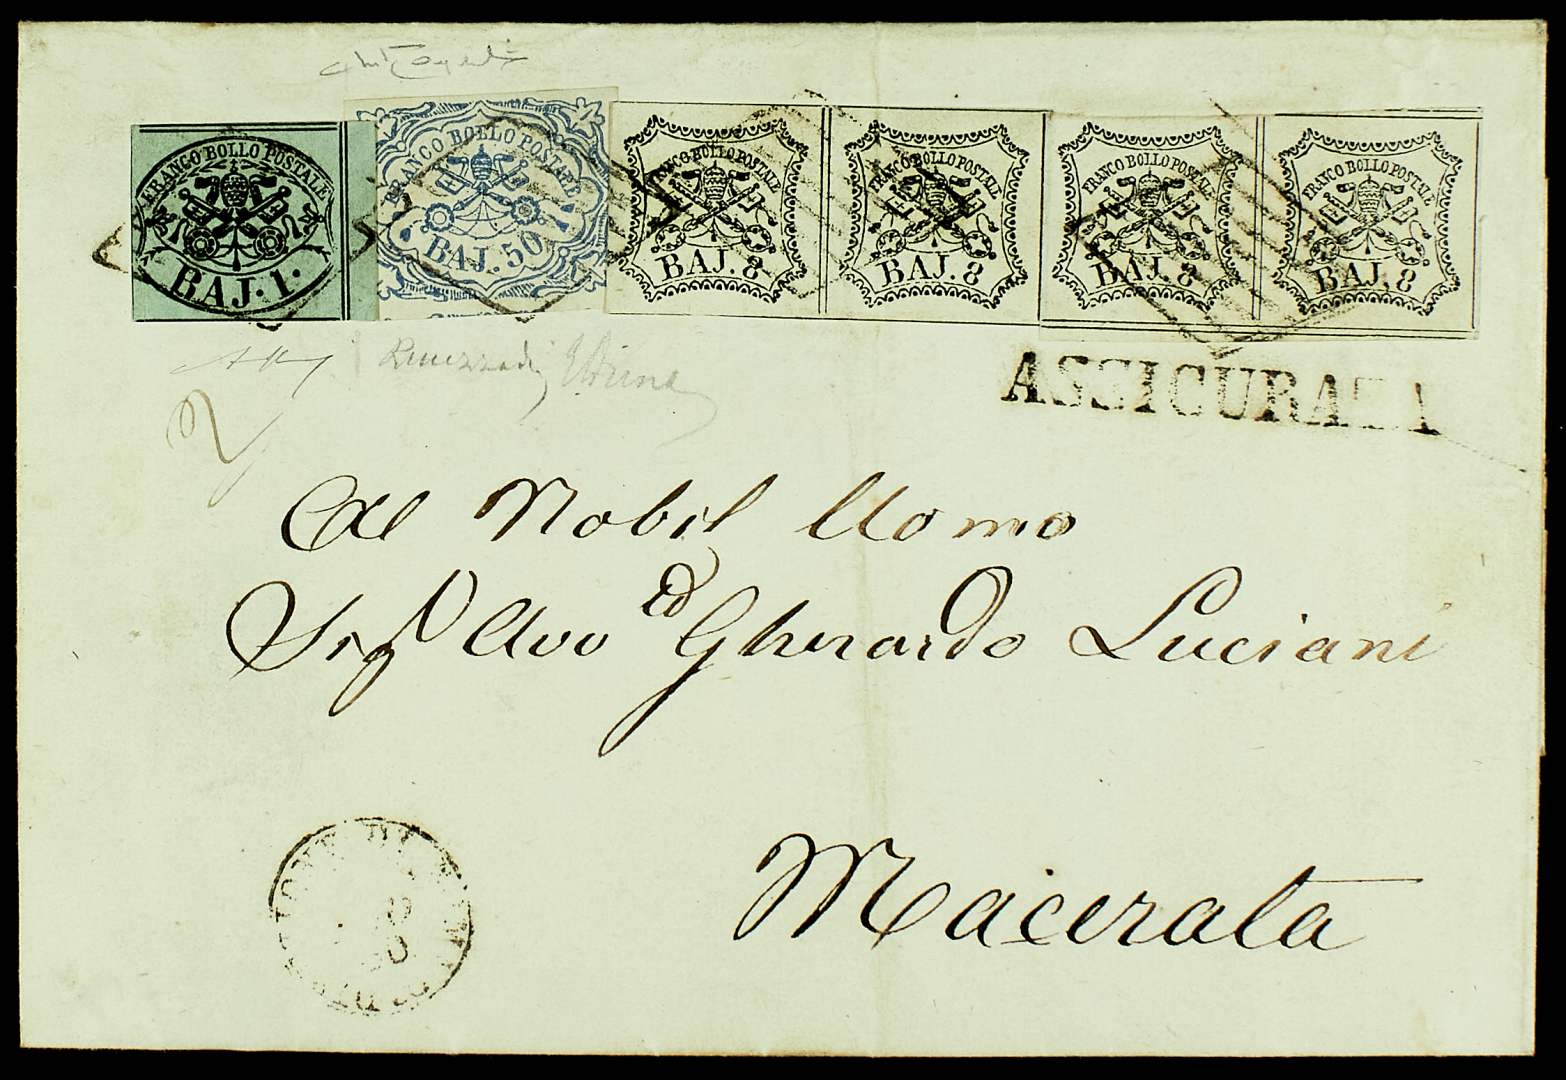 FRANCO BOLLO POSTALE
BAJ. 1.
FRANCO BOLLO POSTALE
BAJ. 50
FRANCO BOLLO POSTALE
BAJ. 8
FRANCO BOLLO POSTALE
BAJ. 8
FRANCO BOLLO POSTALE
BAJ. 8
FRANCO BOLLO POSTALE
BAJ. 8
ASSICURATA
Al Nobil Uomo
Sigr Avvo Gherardo Luciani
Macerata